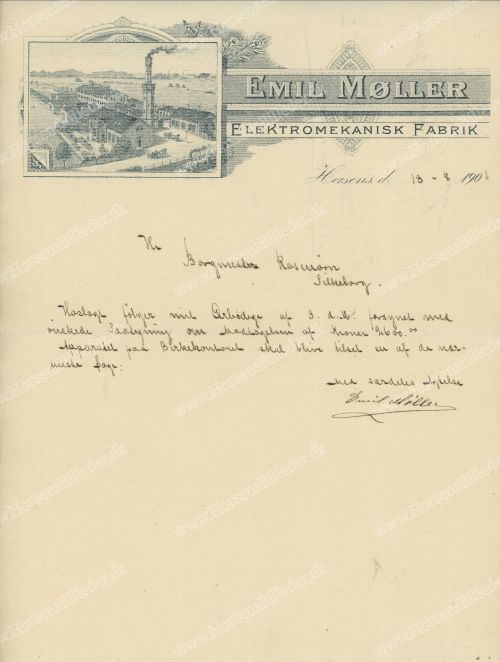 EMIL MØLLER
ELEKTROMEKANISK FABRIK
Horsens, d. 13 - 8 190
Hr
Borgmester Rosenørn
Silkeborg.
Vedlagt følger mit af 3. d. M. forsynet med
ønskede om Modtagelsen af Kroner 2600.00
Apparatet paa Birkekontoret skal blive tilset en af de nær-
meste Dage.
Med særdeles Agtelse
Emil Møller
www.HorsensBilleder.dk